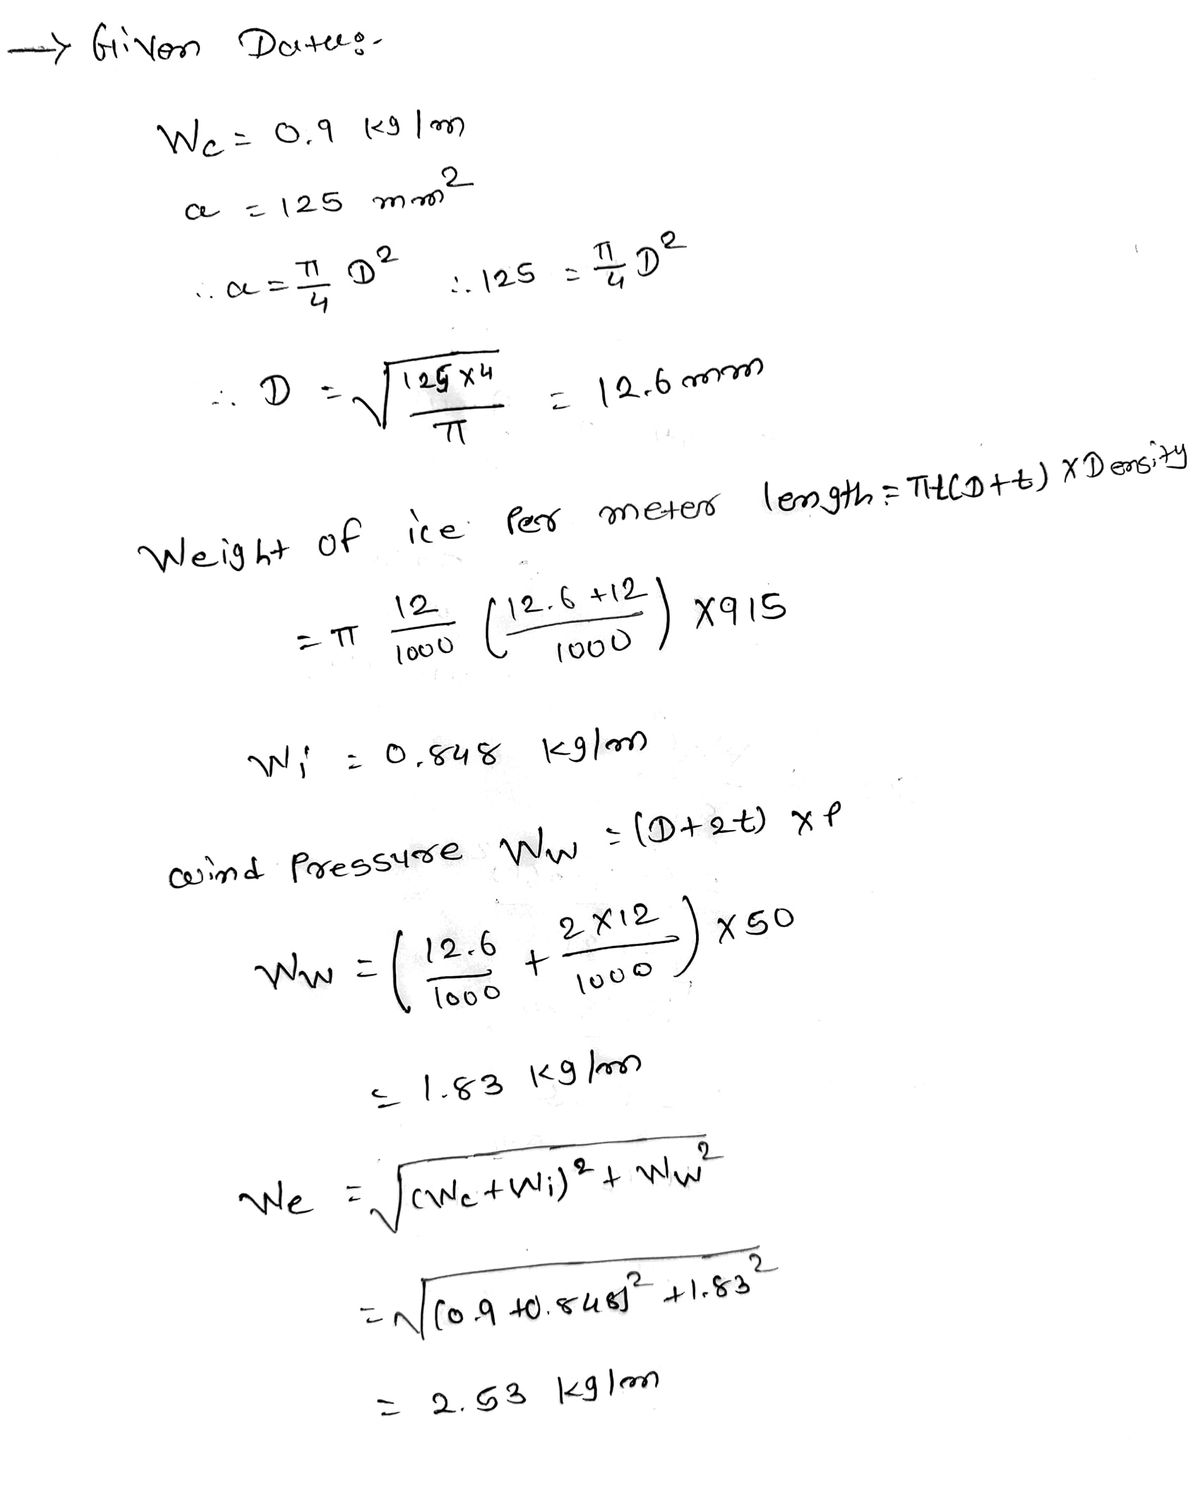 → Given Data:-
Wc = 0.9 kg/m
a = 125 mm²
∴ a = π/4 D² ∴ 125 = π/4 D²
∴ D = √(125×4/π) = 12.6 mm
Weight of ice Per meter length = πt(D+t) × Density
= π 12/1000 (12.6+12/1000) ×915
Wi = 0.848 kg/m
wind Pressure Ww = (D+2t) × P
Ww = (12.6/1000 + 2×12/1000) × 50
= 1.83 kg/m
We = √((Wc+Wi)² + Ww²)
= √((0.9+0.848)² + 1.83²)
= 2.53 kg/m